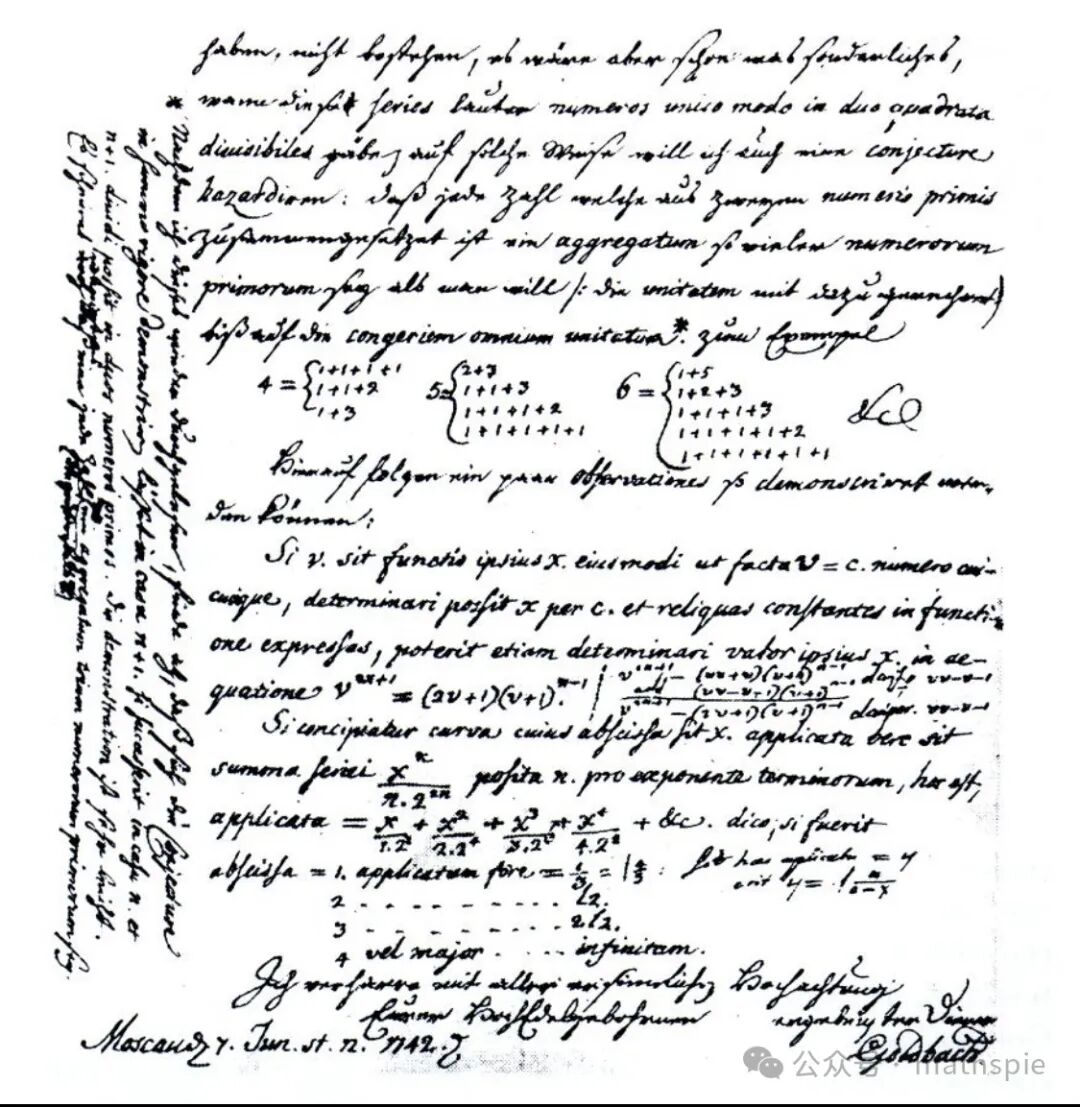 haben, nicht bestehen, es wäre aber schon was sonderliches,
wann diese series lauter numeros unico modo in duo quadrata
divisibiles gäbe, auf solche Weise will ich auch eine conjecture
hazardiren: daß jede Zahl welche aus zweyen numeris primis
zusammengesetzet ist ein aggregatum so vieler numerorum
primorum sey als man will /: die unitatem mit dazu gerechnet :/
biß auf die congeriem omnium unitatum*. zum Exempel
4 = { 1+1+1+1
1+1+2
1+3
5 = { 2+3
1+1+3
1+1+1+2
1+1+1+1+1
6 = { 1+5
1+2+3
1+1+1+3
1+1+1+1+2
1+1+1+1+1+1
&c
Hierauf folgen ein paar observationes so demonstriret wer-
den können:
Si v. sit functio ipsius x. eiusmodi ut facta v = c. numero cui-
cunque, determinari possit x per c. et reliquas constantes in functi-
one expressas, poterit etiam determinari valor ipsius x. in ae-
quatione v^{2x+1} = (2v+1)(v+1)^{x-1}.
Si concipiatur curva cuius abscissa sit x. applicata vero sit
summa seriei x^n/(n.2^{2n}) posita n. pro exponente terminorum, hoc est,
applicata = x/(1.2^2) + x^2/(2.2^4) + x^3/(3.2^6) + x^4/(4.2^8) + &c. dico, si fuerit
abscissa = 1. applicatam fore = l 4/3
2 . . . . . . . . l2.
3 . . . . . . . . 2l2.
4 vel major . . . infinitam.
Ich verharre mit aller ersinnlichen Hochachtung
Eurer HochEdelgebohrnen ergebenster Diener
Moscau d. 7. Jun. st. n. 1742. Goldbach.
* Nachdem ich dieses wieder durchgelesen, finde ich, daß sich die conjecture
in summo rigore demonstriren läßet in casu n+1. si successerit in casu n. et
n+1. dividi possit in duos numeros primos. die demonstration ist sehr leicht.
Es scheinet wenigstens, daß eine jede Zahl ein aggregatum trium numerorum primorum sey.
公众号 · mathspie